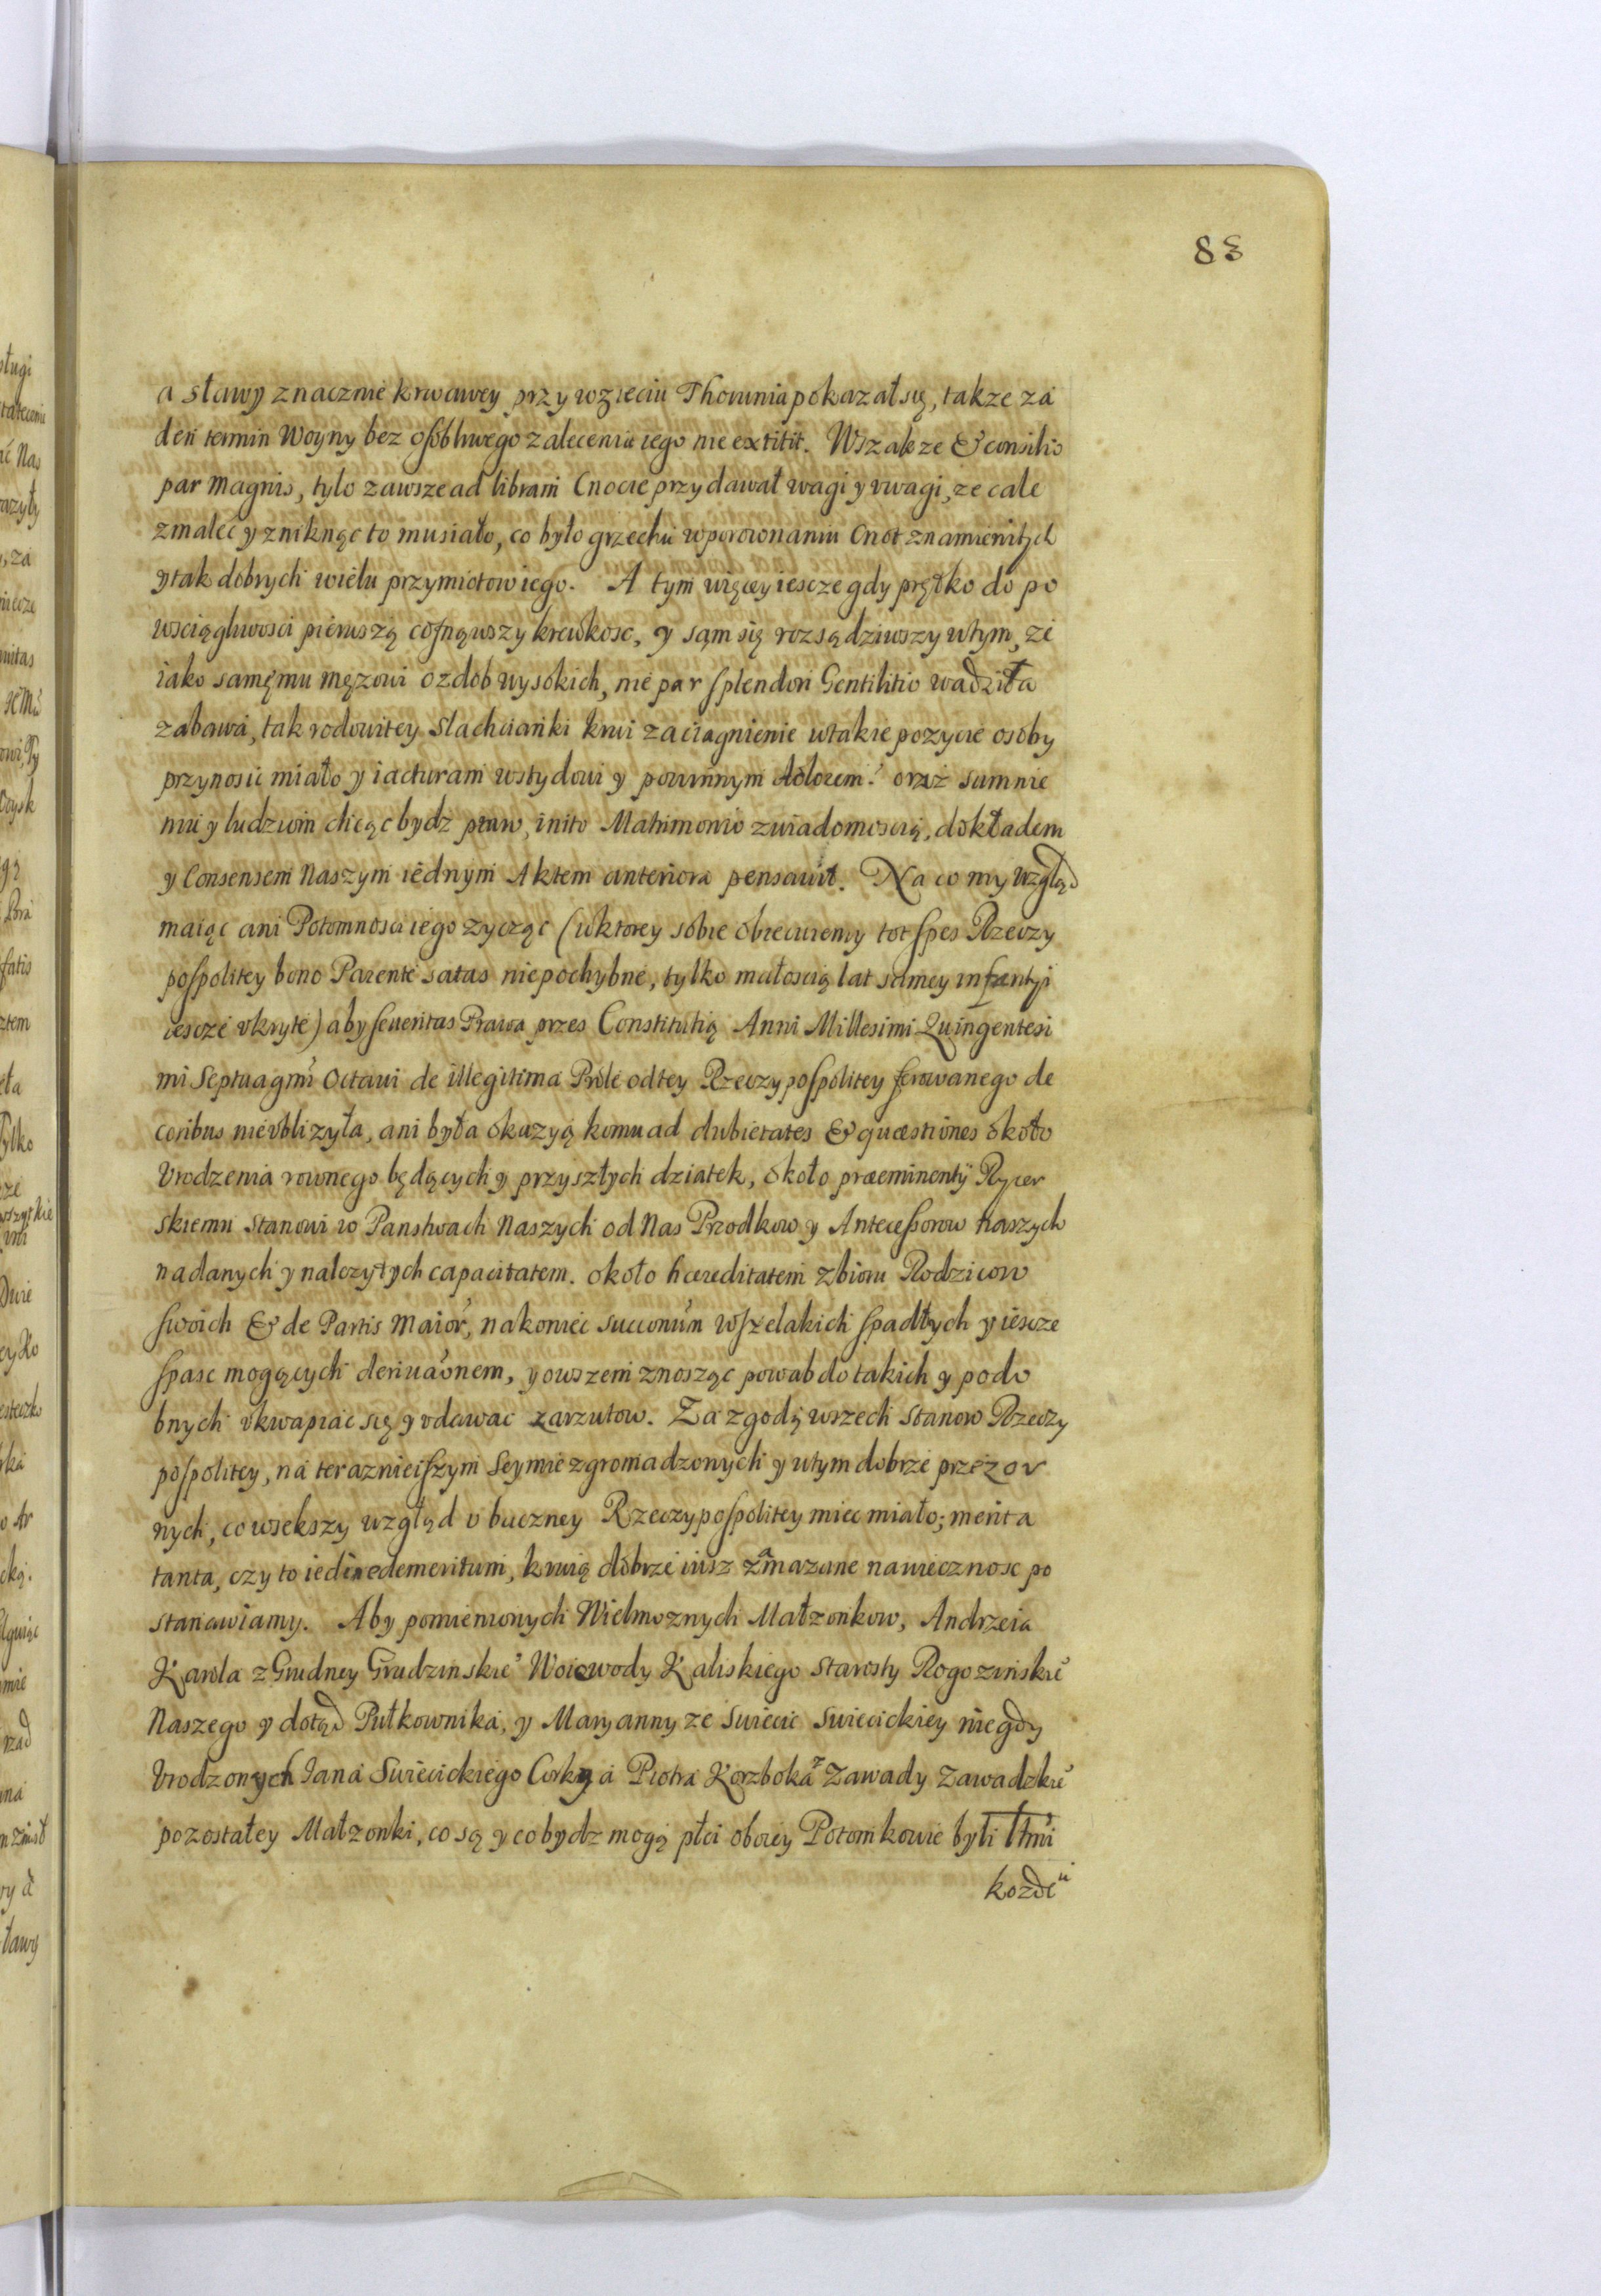 83
a sławy znacznie krwawey przy wzięciu Thorunia pokazał się, takze za
den termin Woyny bez osobliwego zalecenia iego nie extitit. Wszakze & consilio
par Magnis, tylo zawsze ad libram Cnocie przydawał wagi y vwagi, ze cale
zmaleć y zniknąc to musiało, co było grzechu wporownaniu Cnot znamienitych
y tak dobrych wielu przymiotow iego. A tym więcey iescze gdy prętko do po
wsciągliwosci pierwszą cofnąwszy krewkosc, y sąm się rozsądziwszy wtym, ze
iako samęmu męzowi ozdob wysokich, nie par splendori Gentilitio wadziła
zabawa, tak rodowitey Slachcianki krwi zaciągnienie wtakie pozycie osoby
przynosic miało y iacturam wstydowi y powinnym dolorem: oraz sumnie
niu y ludziom chcąc bydz praw, inito Matrimonio zwiadomoscią, dokładem
y Consensem Naszym iednym Aktem anteriora pensavit. Na co my wzgląd
maiąc ani Potomnosci iego zycząc (wktorey sobie obiecuiemy tot spes Rzeczy
pospolitey bono Parente satas niepochybne, tylko małoscią lat samey infantyi
iescze vkryte) aby seueritas Prawa przes Constitutią Anni Millesimi Quingentesi
mi Septuagmi Octaui de illegitima Prole odtey Rzeczypospolitey ferowanego de
coribus nievblizyła, ani była okazyą komu ad dubietates & quæstiones około
Vrodzenia rownego będących y przyszłych dziatek, około præeminentÿ Rycer
skiemu Stanowi w Panstwach Naszych od Nas Przodkow y Antecessorow Naszych
nadanych y nalezytych capacitatem. około hæreditatem zbioru Rodzicow
swoich & de Partis Maior, nakoniec succonum wszelakich spadłych y iescze
spasc mogących deriuaonem, y owszem znosząc powab do takich y podo
bnych vkwapiac się y vdawac zarzutow. Za zgodą wszech Stanow Rzeczy
pospolitey, na teraznieiszym Seymie zgromadzonych y wtym dobrze przezor
nych, co wiekszy wzgląd v baczney Rzeczypospolitey miec miało; merita
tanta, czy to iedno demeritum, krwią dobrze iusz zamazane nawiecznosc po
stanawiamy. Aby pomienionych Wielmoznych Małzonkow, Andrzeia
Karola z Grudney Grudzinskie° Woiewody Kaliskiego Starosty Rogozinskie°
Naszego y dotąd Pułkownika, y Maryanny ze Swiecic Swiecickiey niegdy
Vrodzonych Iana Swiecickiego Corky a Piotra Korzboka z Zawady Zawadzkie°
pozostałey Małzonki, co są y co bydz mogą płci oboiey Potomkowie byli tłmi
kozde